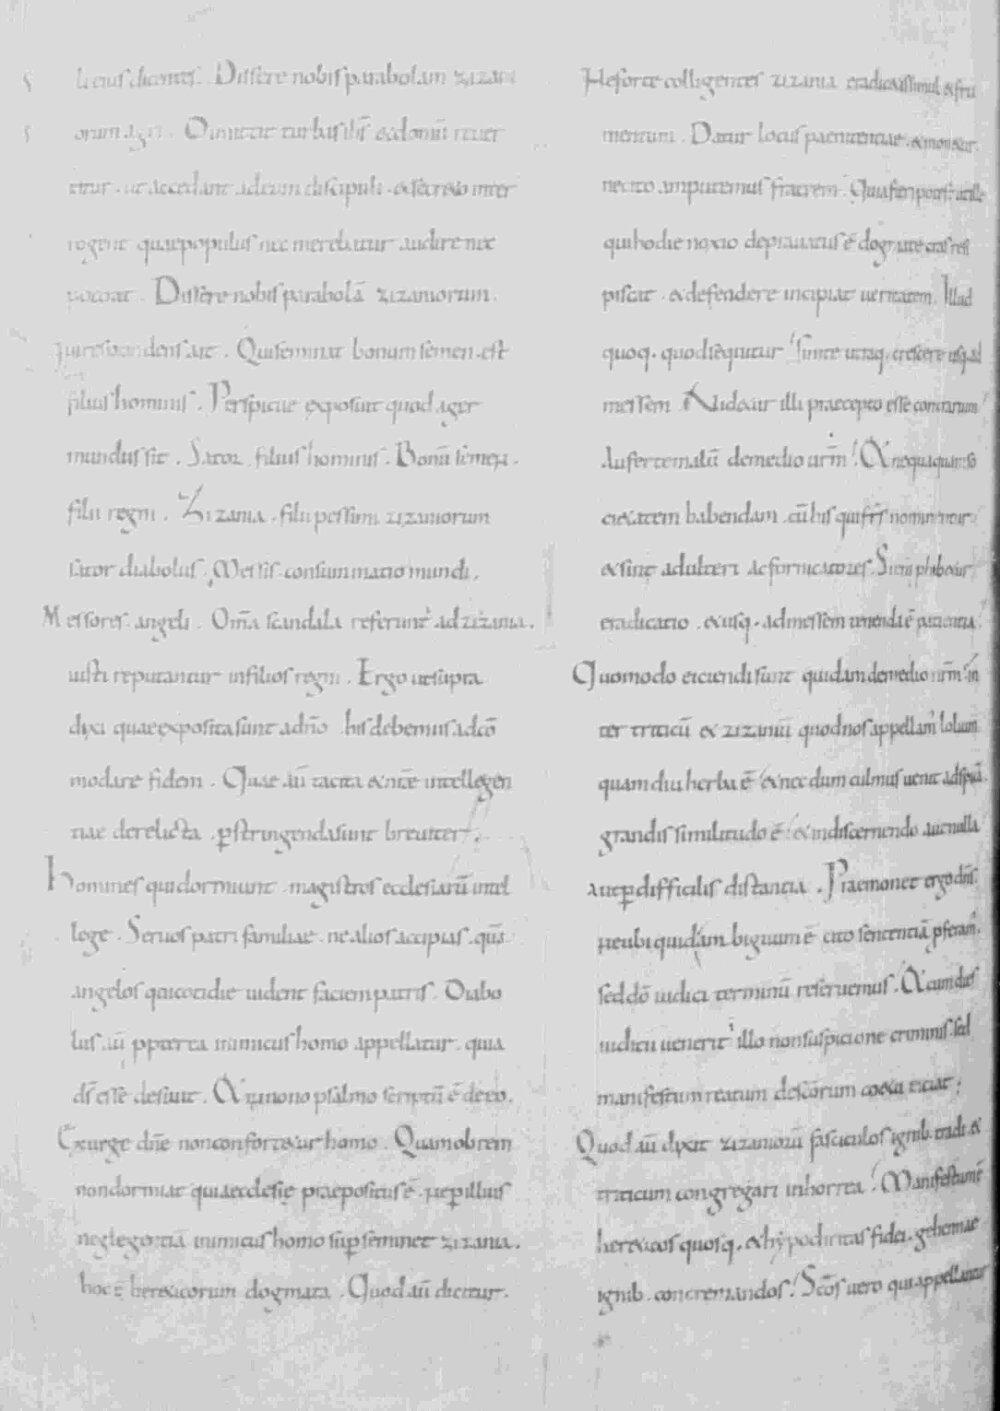 li eius dicentes. Dissere nobis parabolam zizani
orum agri. Dimittit turbas ihs et domū rever
titur. ut accedant ad eum discipuli. et secreto inter
rogent quae populus nec merebatur audire nec
poterat. Dissere nobis parabolā zizaniorum.
Qui respondens ait. Qui seminat bonum semen. est
filius hominis. Perspicue exposuit quod ager
mundus sit. Sator filius hominis. Bonū semen.
filii regni. Zizania. filii pessimi zizaniorum
sator diabolus. Messis. consummatio mundi.
Messores. angeli. Omīa scandala referunt' ad zizania.
iusti reputantur in filios regni. Ergo ut supra
dixi quae exposita sunt a dn̄o his debemus adcō
modare fidem. Quae aū tacita et nr̄e intellegen
tiae derelicta. pstringenda sunt breviter.
Homines qui dormiunt. magistros ecclesiarū intel
lege. Servos patri familiae. ne alios accipias. quā
angelos qui cotidie vident faciem patris. Diabo
lus. aū ppterea inimicus homo appellatur. quia
ds̄ esse desivit. Et in nono psalmo scriptū ē de eo.
Exurge dn̄e non confortetur homo. Quam obrem
non dormiat qui aecclesię praepositus ē. ne p illius
neglegentiā inimicus homo sup seminet zizania.
hoc ē hereticorum dogmata. Quod aū dicitur.
Ne forte colligentes zizania eradicetis simul et fru
mentum. Datur locus paenitentiae. et monetur.
ne cito amputemus fratrem. Quia fieri potest ut ille
qui hodie noxio depravatus ē dogmate cras resi
piscat. et defendere incipiat veritatem. Illud
quoq. quod sequitur sinite utraq. crescere usq. ad
messem. Videtur illi praecepto esse contrarium
Auferte malū de medio urm̄. Et nequaquam so
cietatem habendam. cū his qui frs̄ nominentur
et sint adulteri ac fornicatores. Si enim phibetur
eradicatio. et usq. ad messem tenenda ē patientia.
Quomodo eiciendi sunt quidam de medio nrm̄. In
ter triticū et zizaniū quod nos appellam' lolium
quamdiu herba ē et nec dum culmus venit ad spicā.
grandis similitudo ē. et in discernendo aut nulla
aut p difficilis distantia. Praemonet ergo dn̄s.
ne ubi quid ambiguum ē cito sententiā pferam'.
sed dō iudici terminū reservemus. Ut cum dies
iudicii venerit' ille non suspicionē criminis. sed
manifestum reatum de scōrum coetu eiciat.
Quod aū dixit zizaniorū fasciculos ignib. tradi et
triticum congregari in horrea. Manifestum ē
hereticos quosq. et hypocritas fidei. gehennae
ignib. concremandos. Scōs vero qui appellantur